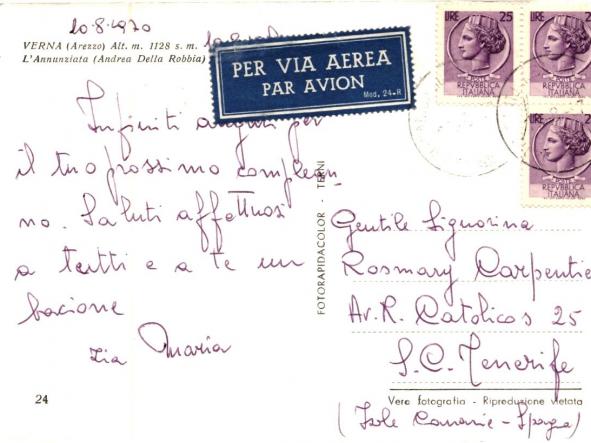 10.8.1970
VERNA (Arezzo) Alt. m. 1128 s. m.
L'Annunziata (Andrea Della Robbia)
PER VIA AEREA
PAR AVION
Mod. 24-R
LIRE 25
POSTE
REPVBBLICA
ITALIANA
LIRE 2
POSTE
REPVBBLICA
ITALIANA
LIRE 2
POSTE
REPVBBLICA
ITALIANA
Infiniti auguri per
il tuo prossimo complean
no. Saluti affettuosi
a tutti e a te un
bacione
zia Maria
24
FOTORAPIDACOLOR - TERNI
Gentile Signorina
Rosmary Carpentie
Av. R. Catolicos 25
S.C. Tenerife
Vera fotografia - Riproduzione vietata
(Isole Canarie - Spagna)